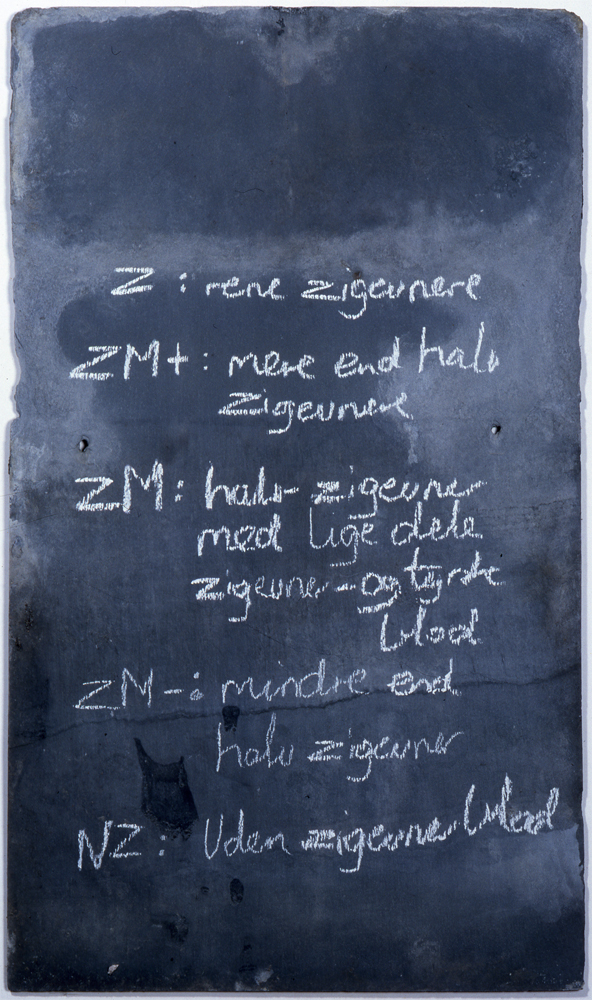 Z : rene zigeunere
ZM+ : mere end halv
zigeunere
ZM : halv zigeuner
med lige dele
zigeuner-og tyrste
blod
ZM- : mindre end
halv zigeuner
NZ : Uden zigeunerblod